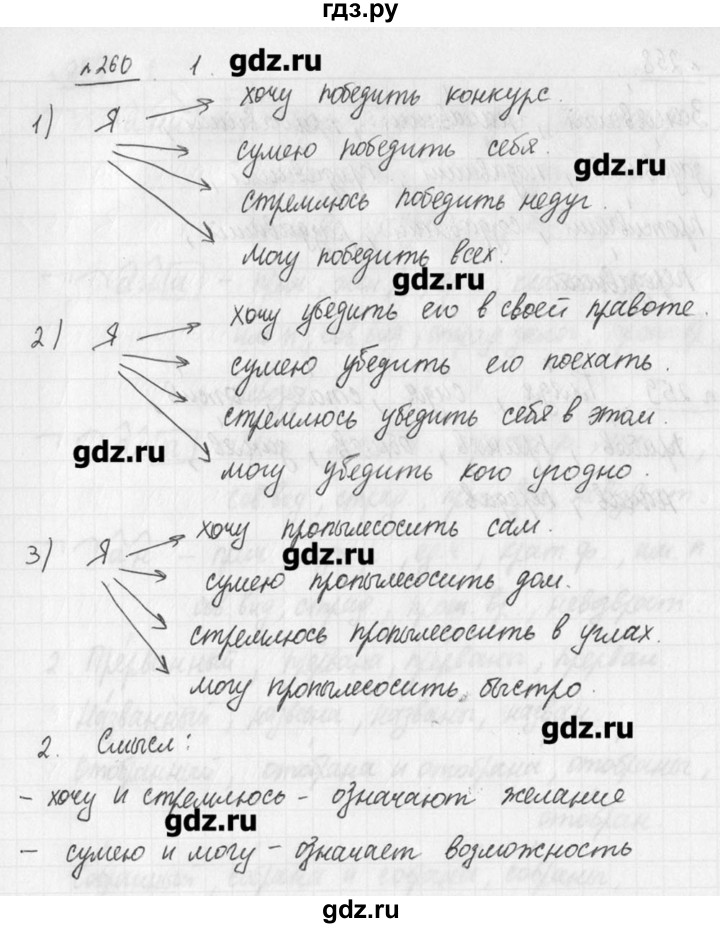 гдз.ру
№260 1. gdz.ru
1) Я хочу победить конкурс.
сумею победить себя.
gdz.ru
стремлюсь победить недуг.
могу победить всех.
gdz.ru
2) Я хочу убедить его в своей правоте.
сумею убедить его поехать.
стремлюсь убедить себя в этом.
gdz.ru
могу убедить кого угодно.
3) Я хочу пропылесосить сам.
gdz.ru
сумею пропылесосить дом.
стремлюсь пропылесосить в углах.
могу пропылесосить быстро.
gdz.ru
2. Смысл:
- хочу и стремлюсь - означают желание
gdz.ru
- сумею и могу - означает возможность
gdz.ru